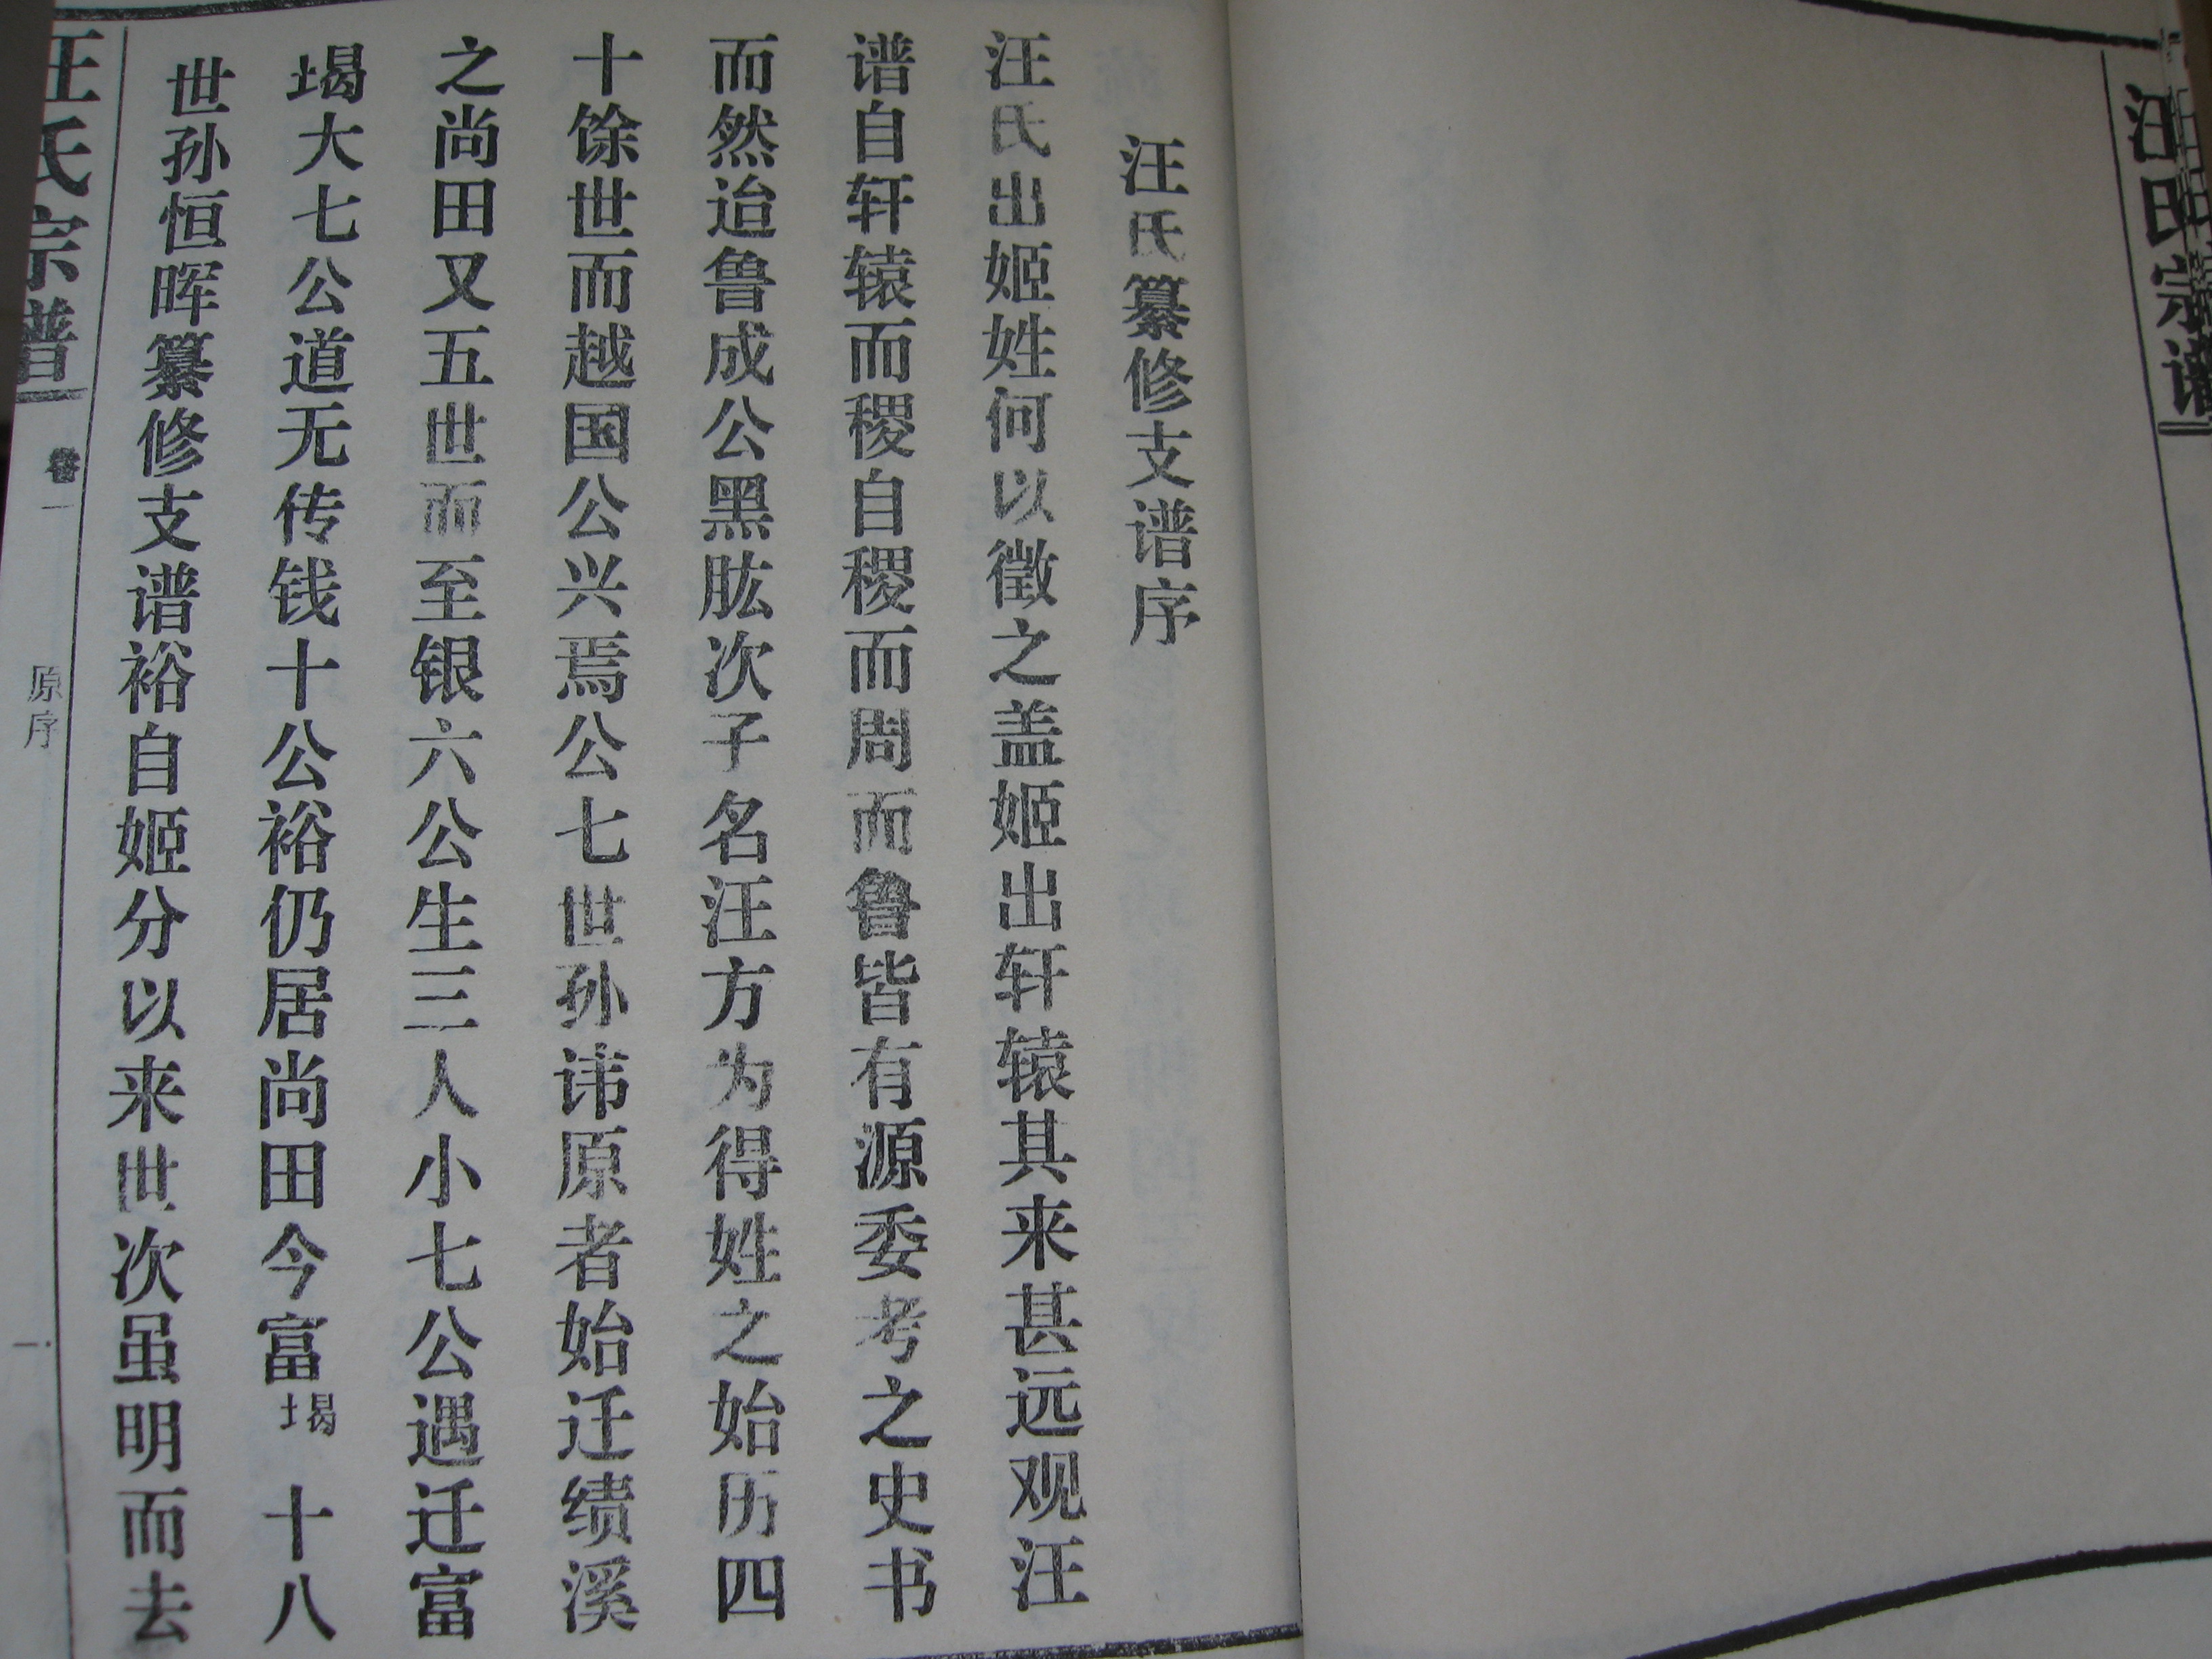 汪氏宗谱
汪氏纂修支谱序
汪氏出姬姓何以徵之盖姬出轩辕其来甚远观汪
谱自轩辕而稷自稷而周而鲁皆有源委考之史书
而然迨鲁成公黑肱次子名汪方为得姓之始历四
十馀世而越国公兴焉公七世孙讳原者始迁绩溪
之尚田又五世而至银六公生三人小七公遇迁富
堨大七公道无传钱十公裕仍居尚田今富堨十八
世孙恒晖纂修支谱裕自姬分以来世次虽明而去
汪氏宗谱 卷一 原序 一